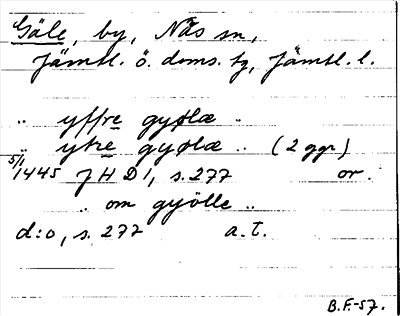 Gäle, by, Näs sn,
Jämtl. ö. doms. tg, Jämtl. l.
.. yffre gyølæ ..
.. ytre gyølæ .. (2 ggr)
5/1 1445 JHD 1, s. 277 or.
.. om gyölle ..
d:o, s. 277 a.t.
B.F.-57.